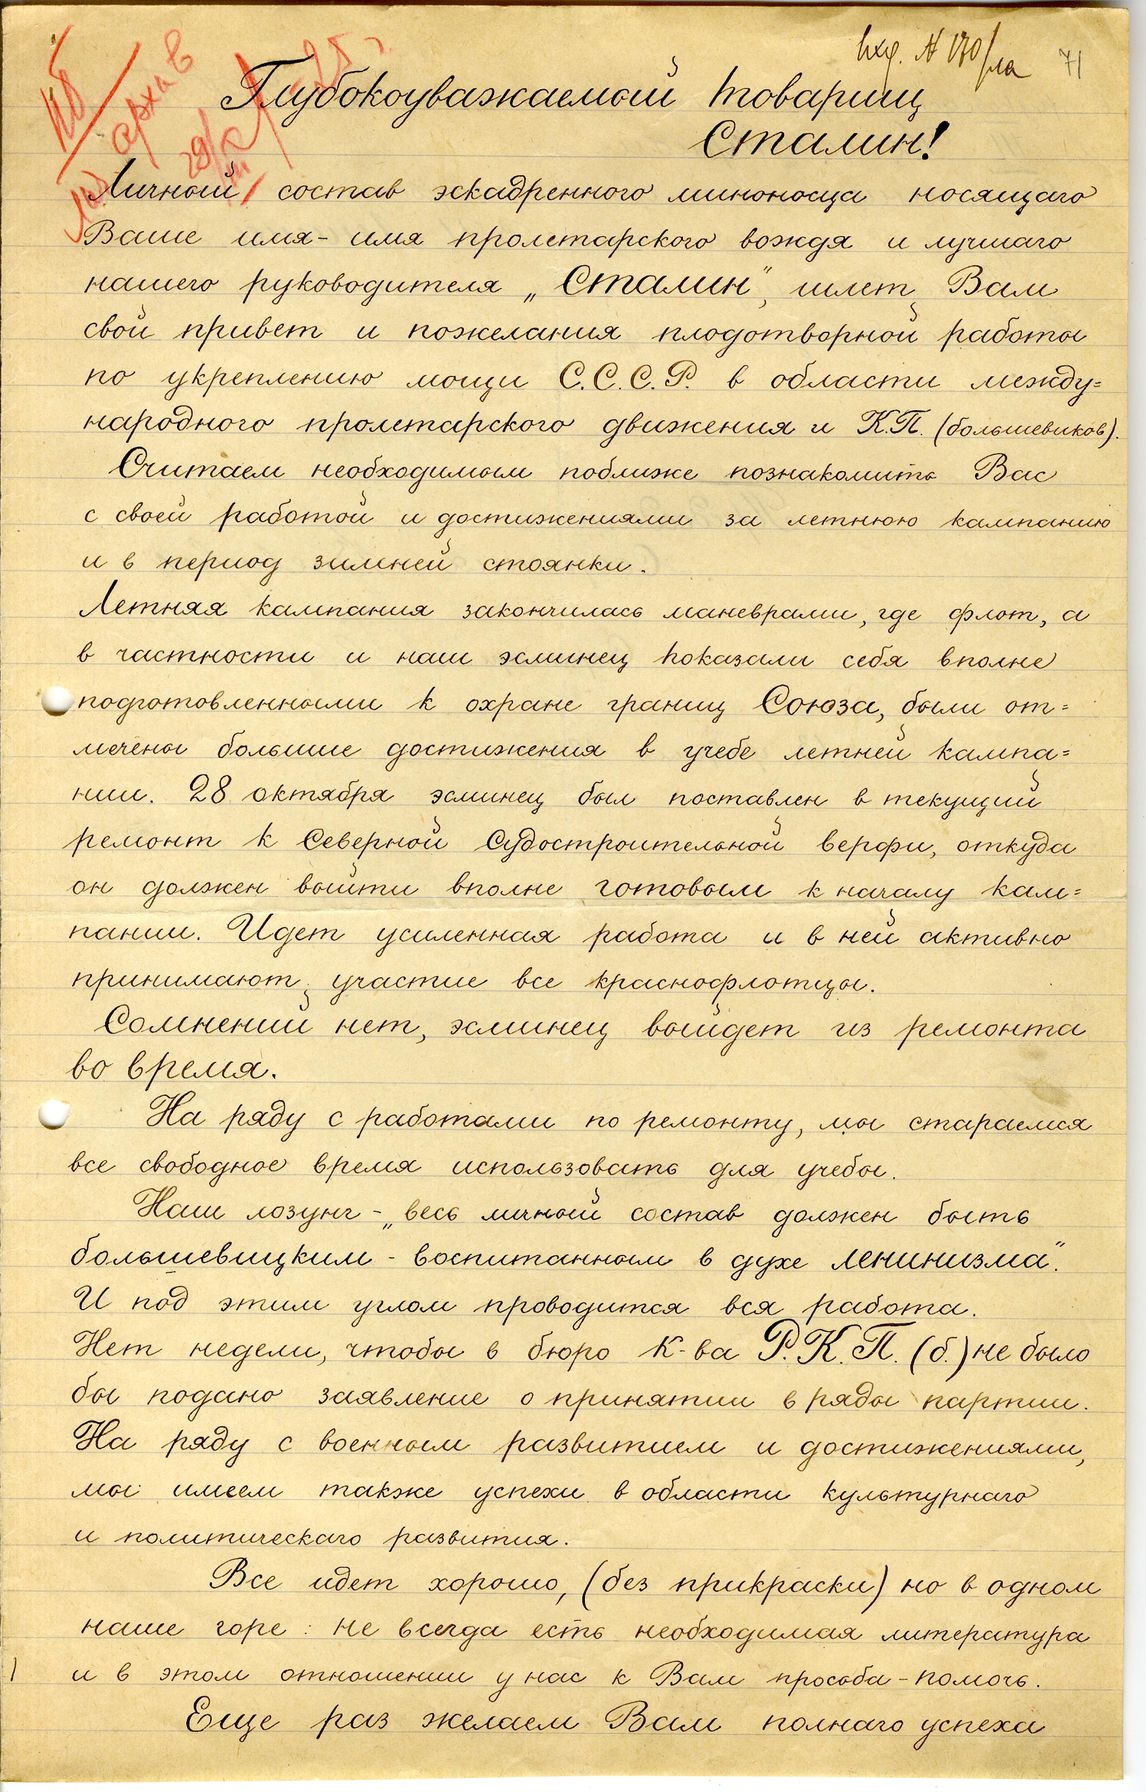 вхд. № 170/ла 71
архив
Глубокоуважаемый товарищ
Сталин!
Личный состав эскадренного миноносца носящаго
Ваше имя - имя пролетарского вождя и лучшаго
нашего руководителя „Сталин", шлет Вам
свой привет и пожелания плодотворной работы
по укреплению мощи С.С.С.Р. в области между=
народного пролетарского движения и К.П. (большевиков).
Считаем необходимым поближе познакомить Вас
с своей работой и достижениями за летнюю кампанию
и в период зимней стоянки.
Летняя кампания закончилась маневрами, где флот, а
в частности и наш эсминец показали себя вполне
подготовленными к охране границ Союза, были от=
мечены большие достижения в учебе летней кампа=
нии. 28 октября эсминец был поставлен в текущий
ремонт к Северной Судостроительной верфи, откуда
он должен выйти вполне готовым к началу кам=
пании. Идет усиленная работа и в ней активно
принимают участие все краснофлотцы.
Сомнений нет, эсминец выйдет из ремонта
во время.
На ряду с работами по ремонту, мы стараемся
все свободное время использовать для учебы.
Наш лозунг - „весь личный состав должен быть
большевицким - воспитанным в духе Ленинизма".
И под этим углом проводится вся работа.
Нет недели, чтобы в бюро К-ва Р.К.П. (б.) не было
бы подано заявление о принятии в ряды партии.
На ряду с военным развитием и достижениями,
мы имеем также успехи в области культурнаго
и политическаго развития.
Все идет хорошо, (без прикраски) но в одном
наше горе: не всегда есть необходимая литература
и в этом отношении у нас к Вам прособа - помочь.
Еще раз желаем Вам полнаго успеха